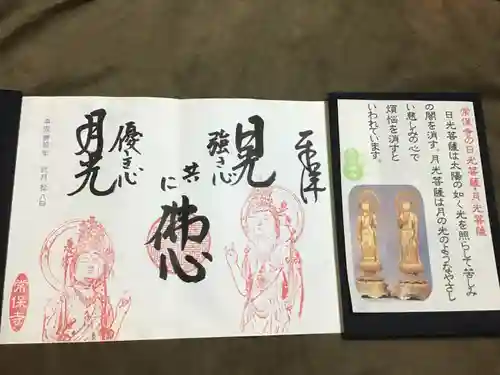 常保寺の日光菩薩・月光菩薩
日光菩薩は太陽の如く光を照らして苦しみ
の闇を消す。月光菩薩は月の光のようなやさし
い慈しみの心で
煩悩を消すと
いわれています。
奉拝
日光
強き心
共に
佛心
優き心
月光
常保寺